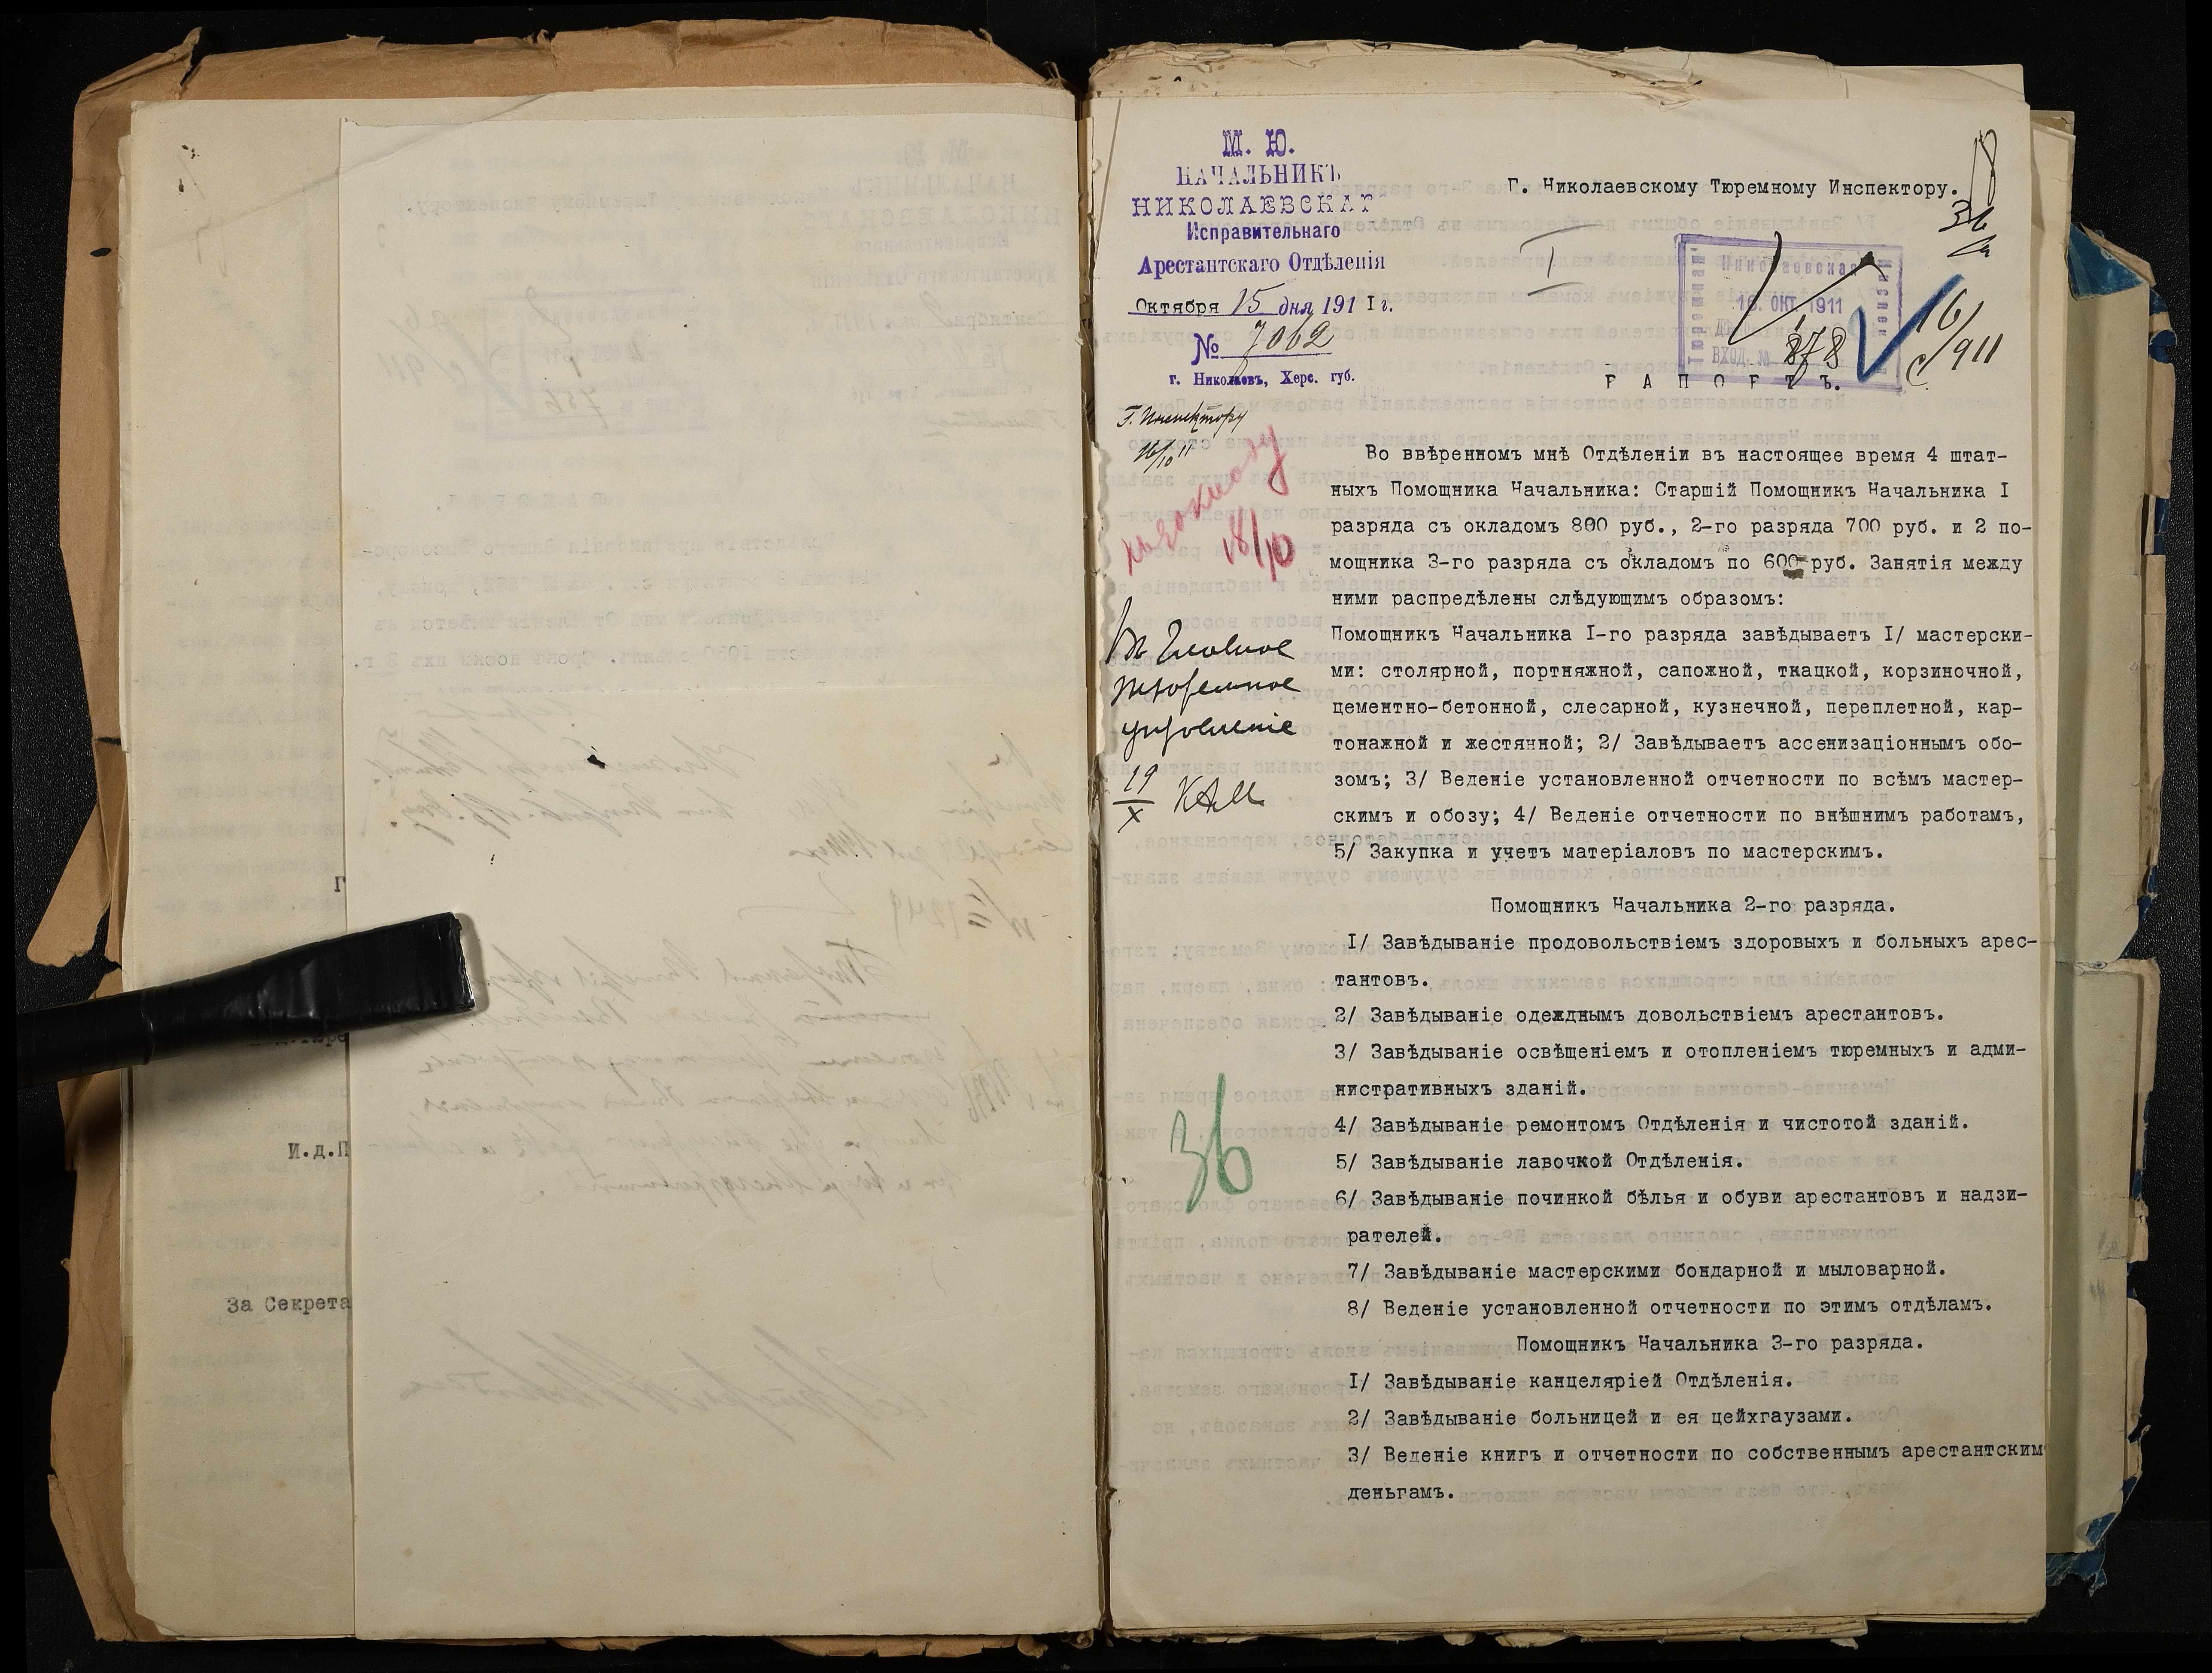 Г
И.д.П
За Секрета
М. Ю.
НАЧАЛЬНИКЪ
НИКОЛАЕВСКАГ
Исправительнаго
Арестантскаго Отдѣленія
Октября 15 дня 191 I г.
№ 7062
г. Николаевъ, Херс. губ.
Г. Николаевскому Тюремному Инспектору.
18
36
I
Николаевская
Тюремная
Инспек
16. ОКТ. 1911
ВХОД. № 878
16/911
Р А П О Р Т Ъ.
Г. Инспектору
16/10 11
къ докладу
18/10
Въ Главное
тюремное
управленіе
19/X
36
Во ввѣренномъ мнѣ Отдѣленіи въ настоящее время 4 штат-
ныхъ Помощника Начальника: Старшій Помощникъ Начальника I
разряда съ окладомъ 800 руб., 2-го разряда 700 руб. и 2 по-
мощника 3-го разряда съ окладомъ по 600 руб. Занятія между
ними распредѣлены слѣдующимъ образомъ:
Помощникъ Начальника I-го разряда завѣдываетъ I/ мастерски-
ми: столярной, портняжной, сапожной, ткацкой, корзиночной,
цементно-бетонной, слесарной, кузнечной, переплетной, кар-
тонажной и жестянной; 2/ Завѣдываетъ ассенизаціоннымъ обо-
зомъ; 3/ Веденіе установленной отчетности по всѣмъ мастер-
скимъ и обозу; 4/ Веденіе отчетности по внѣшнимъ работамъ,
5/ Закупка и учетъ матеріаловъ по мастерскимъ.
Помощникъ Начальника 2-го разряда.
I/ Завѣдываніе продовольствіемъ здоровыхъ и больныхъ арес-
тантовъ.
2/ Завѣдываніе одежднымъ довольствіемъ арестантовъ.
3/ Завѣдываніе освѣщеніемъ и отопленіемъ тюремныхъ и адми-
нистративныхъ зданій.
4/ Завѣдываніе ремонтомъ Отдѣленія и чистотой зданій.
5/ Завѣдываніе лавочкой Отдѣленія.
6/ Завѣдываніе починкой бѣлья и обуви арестантовъ и надзи-
рателей.
7/ Завѣдываніе мастерскими бондарной и мыловарной.
8/ Веденіе установленной отчетности по этимъ отдѣламъ.
Помощникъ Начальника 3-го разряда.
I/ Завѣдываніе канцеляріей Отдѣленія.
2/ Завѣдываніе больницей и ея цейхгаузами.
3/ Веденіе книгъ и отчетности по собственнымъ арестантским
деньгамъ.